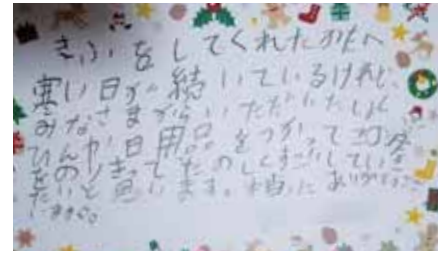 きふをしてくれたかたへ
寒い日が続いているけれど、
みなさまからいただいたしょく
ひんや日用品をつかって コロナ
をのりきってたのしくすごしていき
たいと思います。本当にありがとうござ
います。